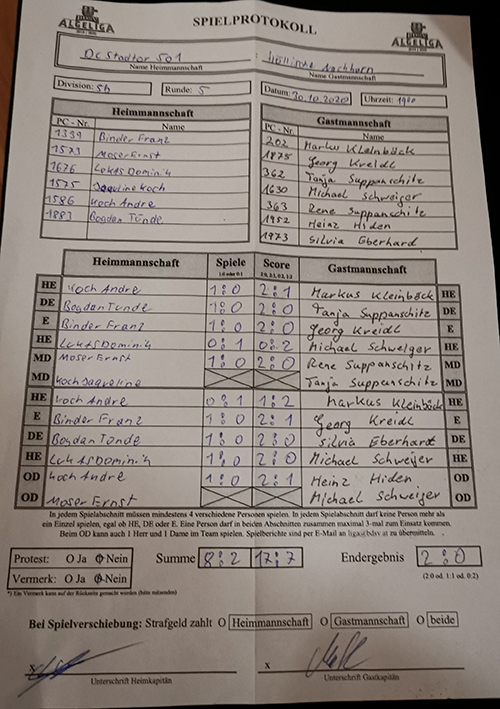 SPIELPROTOKOLL
ALGELIGA ALGELIGA
DC Stadtor 501 : Höllinne Aachhorn
Name Heimmannschaft Name Gastmannschaft
Division: 5b Runde: 5 Datum: 30.10.2020 Uhrzeit: 19 00
Heimmannschaft Gastmannschaft
PC - Nr. Name PC - Nr. Name
1339 Binder Franz 202 Markus Kleinböck
1573 Moser Ernst 1875 Georg Kreidl
1676 Lukas Dominik 362 Tanja Suppanschitz
1575 Jaqueline Koch 1630 Michael Schweiger
1586 Koch Andre 363 Rene Suppanschitz
1883 Bogdan Tünde 1952 Heinz Hiden
1973 Silvia Eberhard
Heimmannschaft Spiele Score Gastmannschaft
1:0 oder 0:1 2:0, 2:1, 0:2, 1:2
HE Koch Andre 1:0 2:1 Markus Kleinböck HE
DE Bogdan Tünde 1:0 2:0 Tanja Suppanschitz DE
E Binder Franz 1:0 2:0 Georg Kreidl E
HE Lukas Dominik 0:1 0:2 Michael Schweiger HE
MD Moser Ernst 1:0 2:0 Rene Suppanschitz MD
MD Koch Jaqueline Tanja Suppanschitz MD
HE Koch Andre 0:1 1:2 Markus Kleinböck HE
E Binder Franz 1:0 2:1 Georg Kreidl E
DE Bogdan Tünde 1:0 2:0 Silvia Eberhardt DE
HE Lukas Dominik 1:0 2:0 Michael Schweiger HE
OD Koch Andre 1:0 2:1 Heinz Hiden OD
OD Moser Ernst Michael Schweiger OD
In jedem Spielabschnitt müssen mindestens 4 verschiedene Personen spielen. In jedem Spielabschnitt darf keine Person mehr als
ein Einzel spielen, egal ob HE, DE oder E. Eine Person darf in beiden Abschnitten zusammen maximal 3-mal zum Einsatz kommen.
Beim OD kann auch 1 Herr und 1 Dame im Team spielen. Spielberichte sind per E-Mail an liga@bdsv.at zu übermitteln.
Protest: O Ja O Nein Summe 8:2 17:7 Endergebnis 2:0
Vermerk: O Ja O Nein (2:0 od. 1:1 od. 0:2)
*) Ein Vermerk kann auf der Rückseite gemacht werden (bitte mitsenden)
Bei Spielverschiebung: Strafgeld zahlt O Heimmannschaft O Gastmannschaft O beide
x x
Unterschrift Heimkapitän Unterschrift Gastkapitän